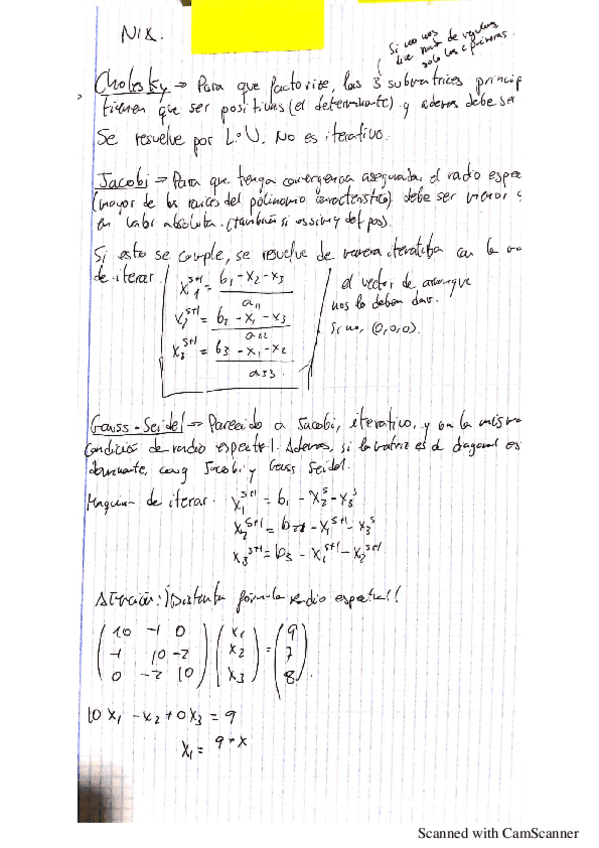 NIX.
Si no nos
solo las primeras.
Cholesky → Para que factorice, las 3 submatrices princip
tienen que ser positivas (el determinante) y ademas debe ser
Se resuelve por L·U. No es iterativo.
Jacobi → Para que tenga convergencia asegurada, el radio espec
(mayor de las raices del polinomio característico) debe ser menor
en valor absoluto. (tambien si es sim y def pos).
Si esto se cumple, se resuelve de manera iterativa con la
de iterar
x1^{s+1} = b1 - x2 - x3 / a11
x2^{s+1} = b2 - x1 - x3 / a22
x3^{s+1} = b3 - x1 - x2 / a33.
el vector de arranque
nos lo deben dar.
Si no, (0,0,0).
Gauss-Seidel → Parecido a Jacobi, iterativo, y con la misma
condición de radio espectral. Ademas, si la matriz es d diagonal es
dominante, conv Jacobi y Gauss Seidel.
de iterar. x1^{s+1} = b1 - x2^s - x3^s
x2^{s+1} = b2 - x1^{s+1} - x3^s
x3^{s+1} = b3 - x1^{s+1} - x2^{s+1}
Atención: ¡Distinta fórmula radio espectral!
(10 -1 0) (x1) = (9)
(-1 10 -2) (x2) (7)
(0 -2 10) (x3) (8).
10x1 - x2 + 0x3 = 9
x1 = 9+x
Scanned with CamScanner